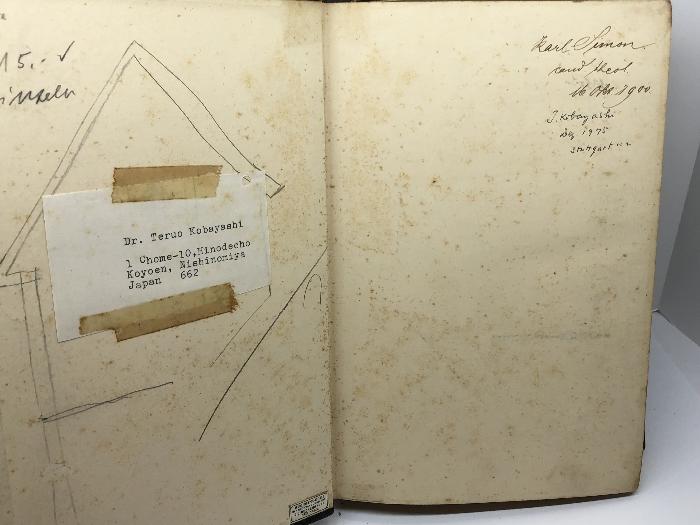 15.- ✓
einzeln
Dr. Teruo Kobayashi
1 Chome-10, Hinodecho
Koyoen, Nishinomiya
Japan 662
Karl Simon
cand theol
16 Okt. 1900.
T. Kobayashi
Dez 1975
Stuttgart